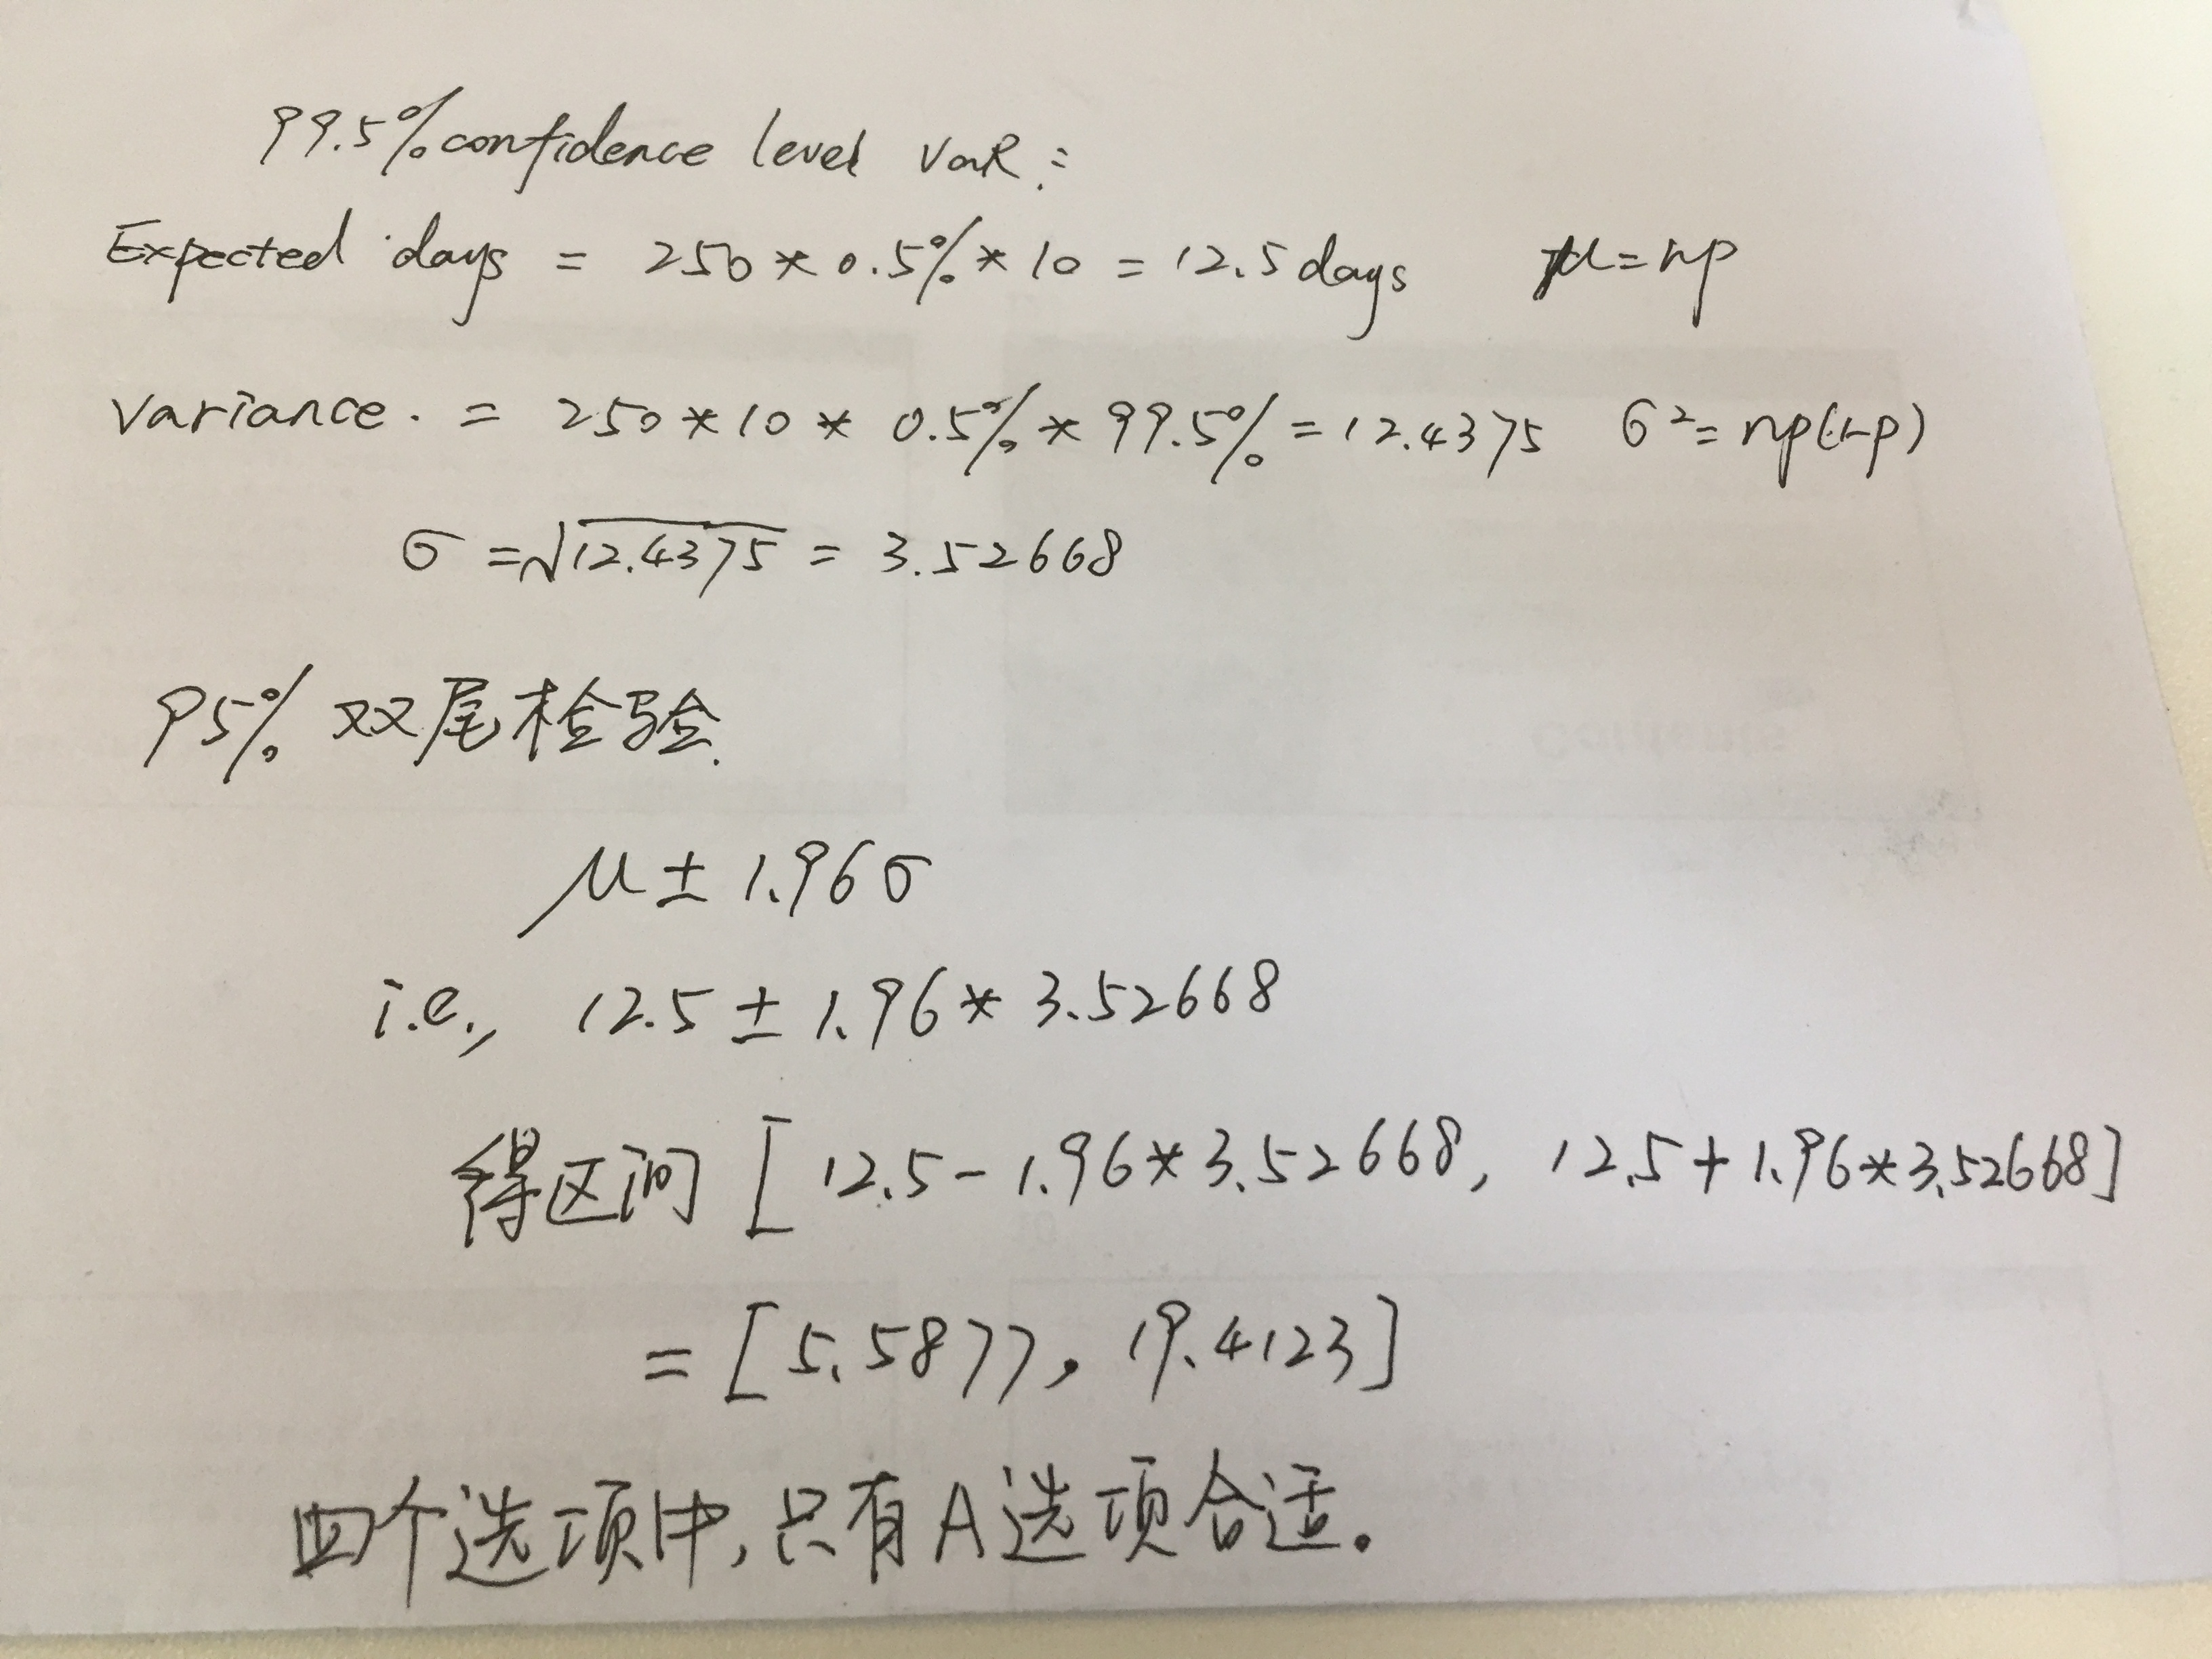 99.5% confidence level VaR:
Expected days = 250 * 0.5% * 10 = 12.5 days μ = np
Variance. = 250 * 10 * 0.5% * 99.5% = 12.4375 σ² = np(1-p)
σ = √12.4375 = 3.52668
95% 双尾检验.
μ ± 1.96σ
i.e., 12.5 ± 1.96 * 3.52668
得区间 [12.5 - 1.96 * 3.52668, 12.5 + 1.96 * 3.52668]
= [5.5877, 19.4123]
四个选项中,只有A选项合适。
Contents